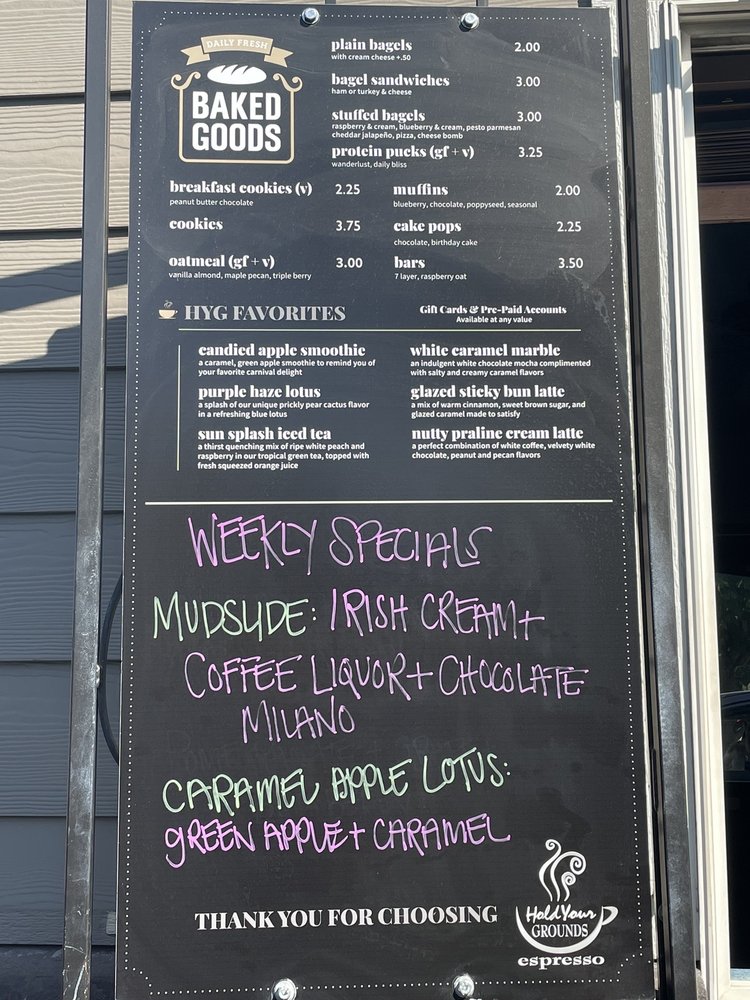 DAILY FRESH
BAKED
GOODS
plain bagels 2.00
with cream cheese +.50
bagel sandwiches 3.00
ham or turkey & cheese
stuffed bagels 3.00
raspberry & cream, blueberry & cream, pesto parmesan
cheddar jalapeño, pizza, cheese bomb
protein pucks (gf + v) 3.25
wanderlust, daily bliss
breakfast cookies (v) 2.25
peanut butter chocolate
cookies 3.75
oatmeal (gf + v) 3.00
vanilla almond, maple pecan, triple berry
muffins 2.00
blueberry, chocolate, poppyseed, seasonal
cake pops 2.25
chocolate, birthday cake
bars 3.50
7 layer, raspberry oat
HYG FAVORITES
Gift Cards & Pre-Paid Accounts
Available at any value
candied apple smoothie
a caramel, green apple smoothie to remind you of
your favorite carnival delight
purple haze lotus
a splash of our unique prickly pear cactus flavor
in a refreshing blue lotus
sun splash iced tea
a thirst quenching mix of ripe white peach and
raspberry in our tropical green tea, topped with
fresh squeezed orange juice
white caramel marble
an indulgent white chocolate mocha complimented
with salty and creamy caramel flavors
glazed sticky bun latte
a mix of warm cinnamon, sweet brown sugar, and
glazed caramel made to satisfy
nutty praline cream latte
a perfect combination of white coffee, velvety white
chocolate, peanut and pecan flavors
WEEKLY SPECIALS
MUDSLIDE: IRISH CREAM+
COFFEE LIQUOR+ CHOCOLATE
MILANO
CARAMEL APPLE LOTUS:
GREEN APPLE+ CARAMEL
THANK YOU FOR CHOOSING
Hold Your
GROUNDS
espresso